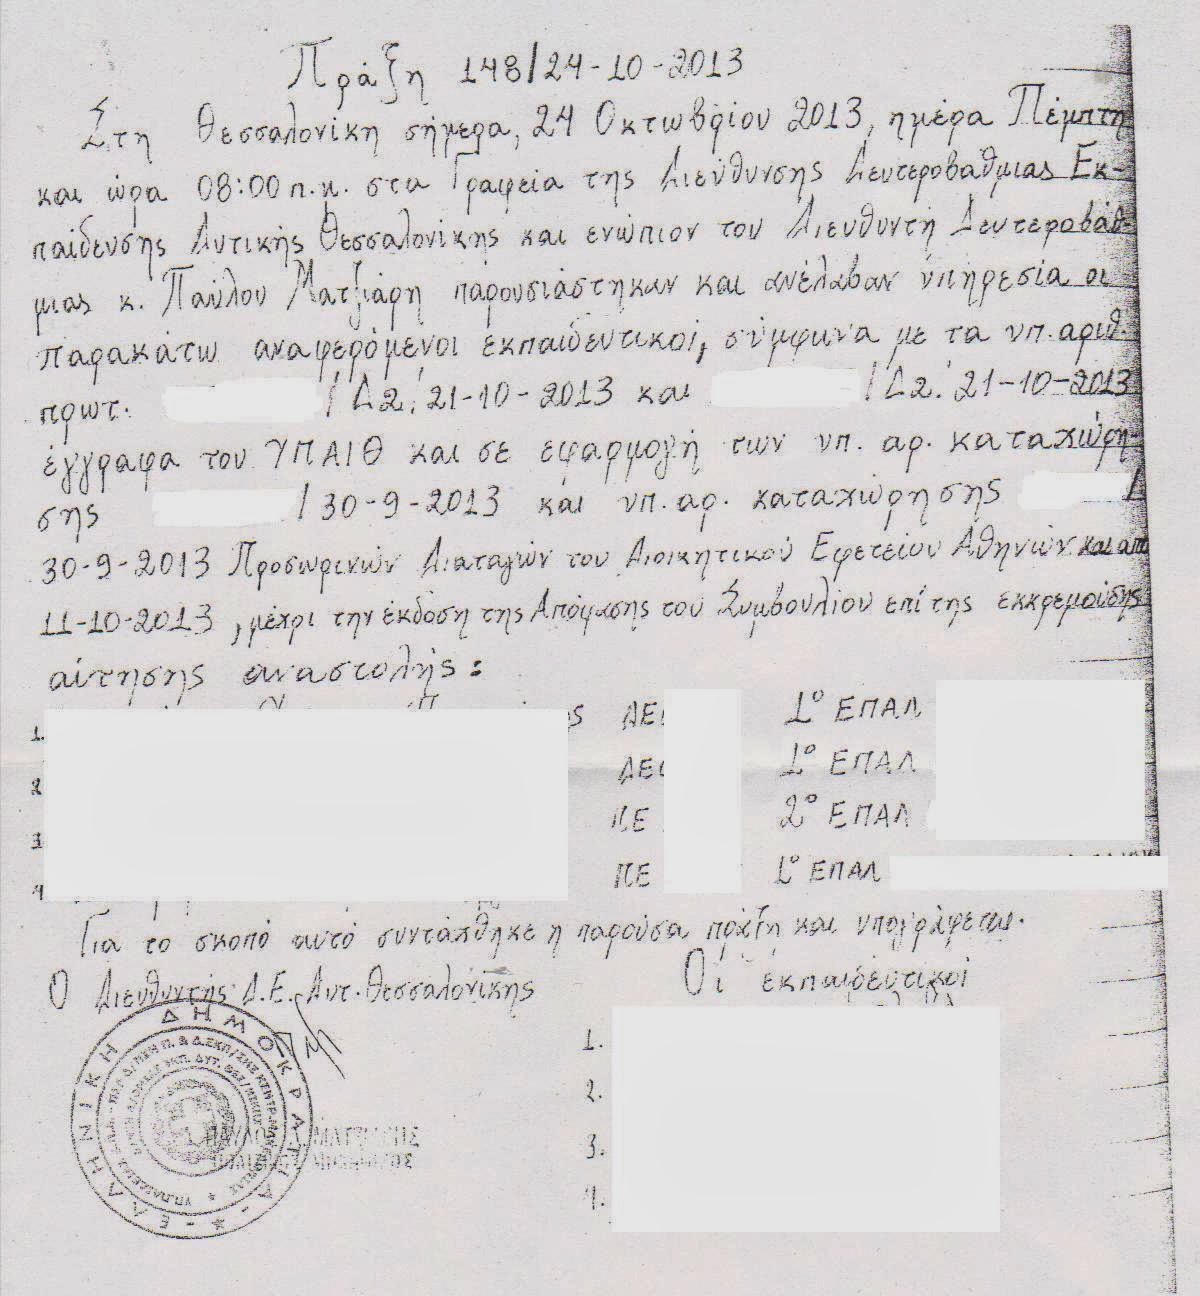 Πράξη 148/24-10-2013
Στη Θεσσαλονίκη σήμερα, 24 Οκτωβρίου 2013, ημέρα Πέμπτη
και ώρα 08:00 π.μ. στα Γραφεία της Διεύθυνσης Δευτεροβάθμιας Εκ-
παίδευσης Δυτικής Θεσσαλονίκης και ενώπιον του Διευθυντή Δευτεροβάθ-
μιας κ. Παύλου Ματζιάρη παρουσιάστηκαν και ανέλαβαν υπηρεσία οι
παρακάτω αναφερόμενοι εκπαιδευτικοί, σύμφωνα με τα υπ. αριθ.
πρωτ. /Δ2/21-10-2013 και /Δ2/21-10-2013
έγγραφα του ΥΠΑΙΘ και σε εφαρμογή των υπ. αρ. καταχώρη-
σης /30-9-2013 και υπ. αρ. καταχώρησης /
30-9-2013 Προσωρινών Διαταγών του Διοικητικού Εφετείου Αθηνών και από
11-10-2013, μέχρι την έκδοση της Απόφασης του Συμβουλίου επί της εκκρεμούσης
αίτησης αναστολής:
1. ΔΕ 1º ΕΠΑΛ
2 ΔΕ 1º ΕΠΑΛ
3 ΠΕ 2º ΕΠΑΛ
4 ΠΕ 1º ΕΠΑΛ
Για το σκοπό αυτό συντάχθηκε η παρούσα πράξη και υπογράφεται.
Ο Διευθυντής Δ.Ε. Δυτ. Θεσσαλονίκης Οι εκπαιδευτικοί
1.
2.
3.
4.
ΕΛΛΗΝΙΚΗ ΔΗΜΟΚΡΑΤΙΑ